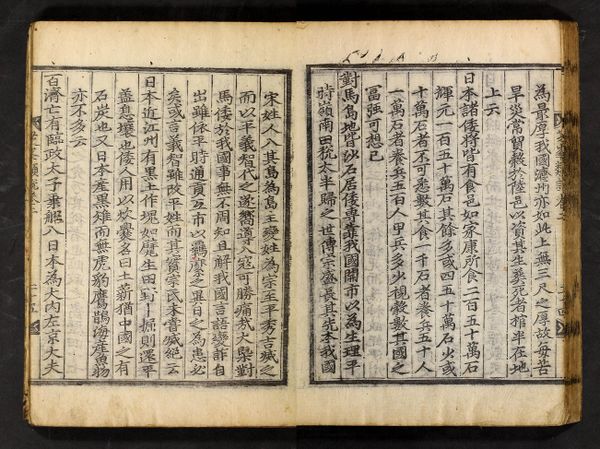 為最厚我國濟州亦如此上無三尺之厚故每苦
旱災常貿穀於陸邑以資其生葬死者棺半在地
上云
日本諸倭將皆有食邑如家康所食二百五十萬石
輝元一百五十萬石其餘多或四五十萬石少或
十萬石者不可悉數其食一千石者養兵五十人
一萬石者養兵五百人甲兵多少視穀數其國之
冨強可想已
對馬島地皆沙石居倭專靠我國開市以為生理平
時嶺南田稅太半歸之世傳宗盛長其先本我國
宋姓人入其島為島主變姓為宗至平秀吉滅之
而以平義智代之遂嚮導入寇可勝痛哉大槩對
馬倭於我國事無不周知且解我國言語變詐自
出雖依平時通貢互市以羈縻之異日之為患必
矣或言義智雖改平姓而其實宗氏未嘗滅絕云
日本近江州有黑土作塊如生田野掘則還平
盖息壤也倭人用以炊爨名曰土薪猶中國之有
石炭也又日本產黑雉而無虎豹鷹鶻海產魚物
亦不多云
百濟亡有臨政太子乘船入日本為大內左京大夫